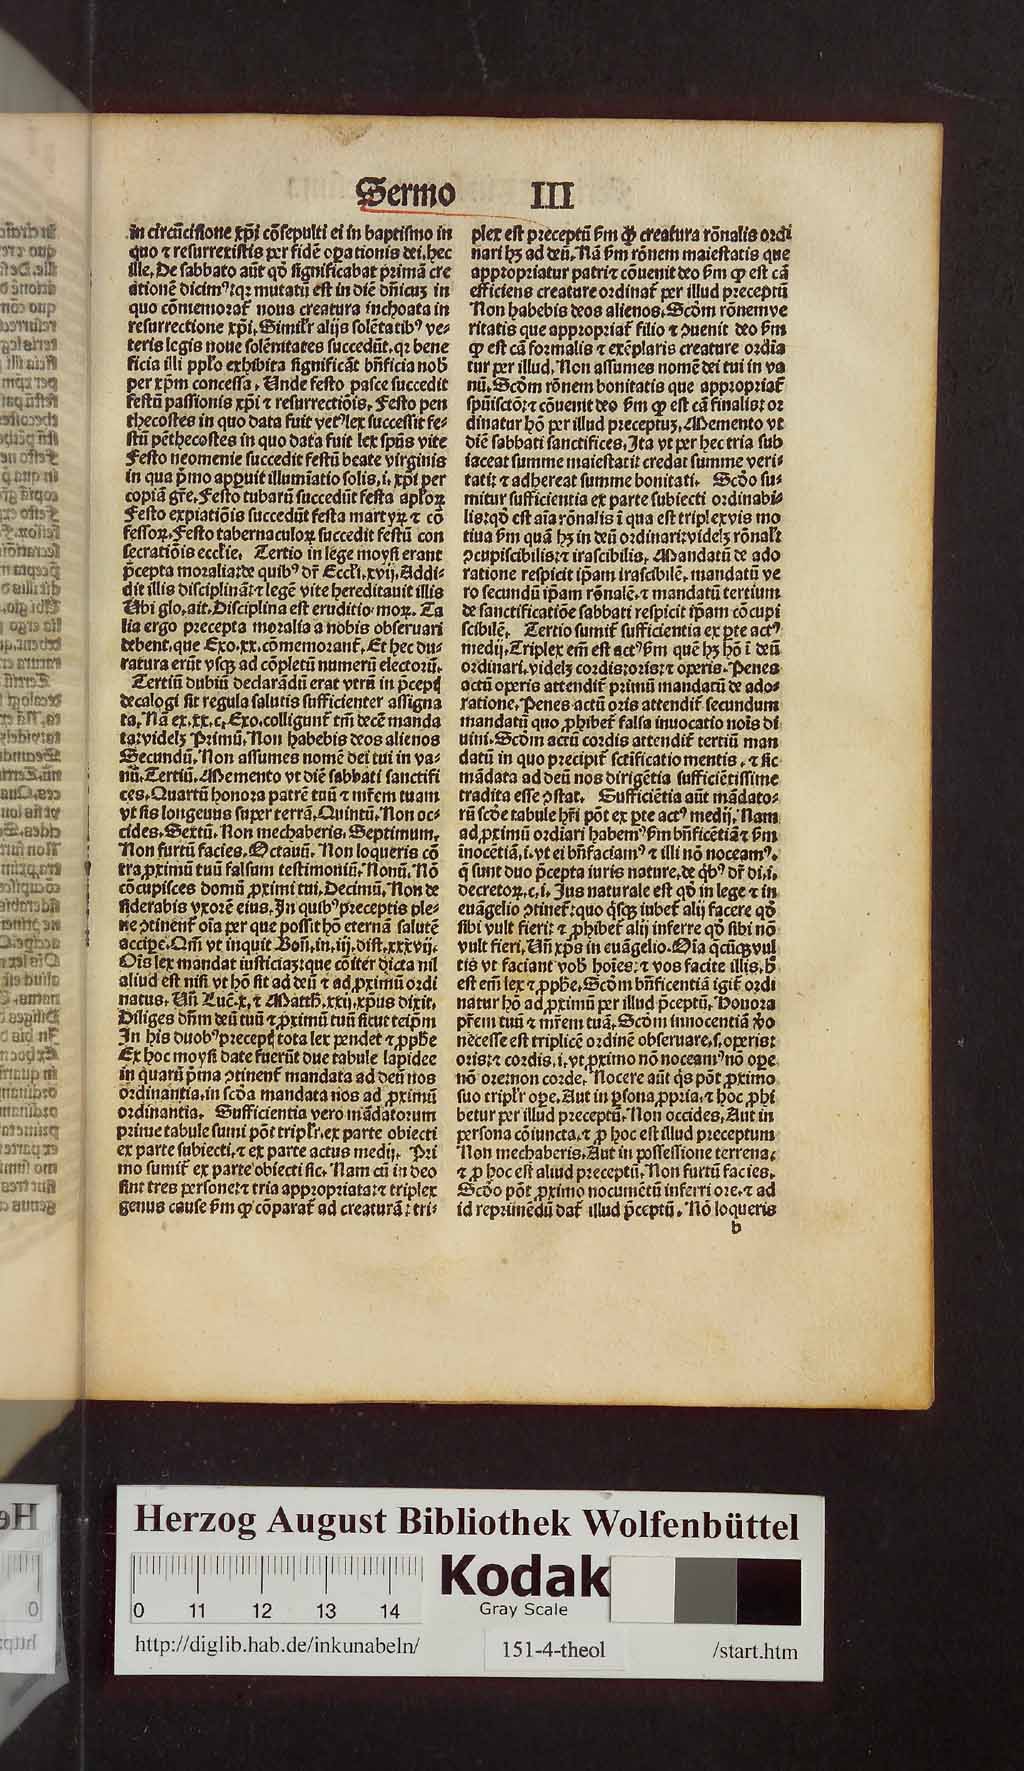 Sermo III
in circūcisione xp̄i cōsepulti ei in baptismo in
quo ⁊ resurrexistis per fidē oꝑationis dei, hec
ille. De sabbato aūt qđ significabat primā cre
ationē dicimꝰ: qꝛ mutatū est in diē dn̄icuꝫ in
quo cōmemoraᵗ noua creatura inchoata in
resurrectione xp̄i. Similꝭr alijs solēnitatibꝰ ve⸗
teris legis noue solēnitates succedūt, qꝛ bene
ficia illi ppl̄o exhibita significāt bn̄ficia nob̄
per xp̄m concessa. Unde festo pasce succedit
festū passionis xp̄i ⁊ resurrectiōis. Festo pen
thecostes in quo data fuit vetꝰ lex successit fe⸗
stū pēthecostes in quo data fuit lex spūs vite
Festo neomenie succedit festū beate virginis
in qua p̄mo apꝑuit illumīatio solis, i. xp̄i per
copiā gr̄e. Festo tubarū succedūt festa apl̄oꝝ
Festo expiatiōis succedūt festa martyꝝ ⁊ cō
fessoꝝ. Festo tabernaculoꝝ succedit festū con
secratiōis eccl̄ie. Tertio in lege moysi erant
p̄cepta moralia: de quibꝰ dr̄ Eccl̄i. xvij. Addi⸗
dit illis disciplinā: ⁊ legē vite hereditauit illis
Ubi glo. ait. Disciplina est eruditio moꝝ. Ta
lia ergo precepta moralia a nobis obseruari
debent, que Exo. xx. cōmemoranᵗ. Et hec du⸗
ratura erūt vsqꝫ ad cōpletū numerū electorū.
Tertiū dubiū declarādū erat vtrū in p̄ceptꝭ
decalogi sit regula salutis sufficienter assigna
ta. Nā ex. xx. c. Exo. colligunᵗ tm̄ decē manda
ta: videlꝫ Primū. Non habebis deos alienos
Secundū. Non assumes nomē dei tui in va⸗
nū. Tertiū. Memento vt diē sabbati sanctifi
ces. Quartū honora patrē tuū ⁊ mr̄em tuam
vt sis longeuus super terrā. Quintū. Non oc⸗
cides. Sextū. Non mechaberis. Septimum.
Non furtū facies. Octauū. Non loqueris cō
tra ꝓximū tuū falsum testimoniū. Nonū. Nō
cōcupisces domū ꝓximi tui. Decimū. Non de
siderabis vxorē eius. In quibꝰ preceptis ple⸗
ne ↄtinenᵗ oīa per que possit hō eternā salutē
accipe. Qm̄ vt inquit Bon̄. in. iij. dist. xxxvij.
Oīs lex mandat iusticiaꝫ: que cōiter dicta nil
aliud est nisi vt hō sit ad deū ⁊ ad ꝓximū ordi
natus. Un̄ Luc̄. x. ⁊ Matth̄. xxij. xp̄us dixit.
Diliges dn̄m deū tuū ⁊ ꝓximū tuū sicut teip̄m
In his duobꝰ preceptꝭ tota lex pendet ⁊ ꝓph̄e
Ex hoc moysi date fuerūt due tabule lapidee
in quarū p̄ma ↄtinenᵗ mandata ad deū nos
ordinantia, in scđa mandata nos ad ꝓximū
ordinantia. Sufficientia vero mādatorum
prime tabule sumi pōt triplꝭr, ex parte obiecti
ex parte subiecti, ⁊ ex parte actus medij. Pri
mo sumiᵗ ex parte obiecti sic. Nam cū in deo
sint tres persone: ⁊ tria appropriata: ⁊ triplex
genus cause ẜm qđ cōparaᵗ ad creaturā: tri⸗
plex est preceptū ẜm qđ creatura rōnalis ordi
nari hꝫ ad deū. Nā ẜm rōnem maiestatis que
appropriatur patri ⁊ cōuenit deo ẜm qđ est cā
efficiens creature ordinaᵗ per illud preceptū
Non habebis deos alienos. Scđm rōnem ve
ritatis que appropriaᵗ filio ⁊ ↄuenit deo ẜm
qđ est cā formalis ⁊ exēplaris creature ordīa
tur per illud. Non assumes nomē dei tui in va
nū. Scđm rōnem bonitatis que appropriaᵗ
spūisctō: ⁊ cōuenit deo ẜm qđ est cā finalis: or
dinatur hō per illud preceptuꝫ. Memento vt
diē sabbati sanctifices. Ita vt per hec tria sub
iaceat summe maiestati: credat summe veri⸗
tati: ⁊ adhereat summe bonitati. Scđo su⸗
mitur sufficientia ex parte subiecti ordinabi⸗
lis: qđ est aīa rōnalis ī qua est triplex vis mo
tiua ẜm quā hꝫ in deū ordinari: videlꝫ rōnal̄:
ↄcupiscibilis: ⁊ irascibilis. Mandatū de ado
ratione respicit ip̄am irascibilē, mandatū ve
ro secundū ip̄am rōnalē, ⁊ mandatū tertium
de sanctificatiōe sabbati respicit ip̄am cōcupi
scibilē. Tertio sumiᵗ sufficientia ex ꝑte actꝰ
medij. Triplex em̄ est actꝰ ẜm quē hꝫ hō ī deū
ordinari, videlꝫ cordis: oris: ⁊ operis. Penes
actū operis attendiᵗ primū mandatū de ado⸗
ratione. Penes actū oris attendiᵗ secundum
mandatū quo ꝓhibeᵗ falsa inuocatio noīs di
uini. Scđm actū cordis attendiᵗ tertiū man
datū in quo precipiᵗ sctīficatio mentis. ⁊ sic
mādata ad deū nos dirigētia sufficiētissime
tradita esse ↄstat. Sufficiētia aūt mādato⸗
rū scđe tabule hr̄i pōt ex ꝑte actꝰ medij. Nam
ad ꝓximū ordīari habemꝰ ẜm bn̄ficētiā ⁊ ẜm
īnocētiā, i. vt ei bn̄faciamꝰ ⁊ illi nō noceamꝰ.
q̄ sunt duo p̄cepta iuris nature, de qͥbꝰ dr̄ di. i.
decretoꝝ. c. i. Jus naturale est qđ in lege ⁊ in
euāgelio ↄtineᵗ: quo qͥsqꝫ iubeᵗ alij facere qđ
sibi vult fieri: ⁊ ꝓhibeᵗ alij inferre qđ sibi nō
vult fieri. Un̄ xp̄s in euāgelio. Oīa q̄cūqꝫ vul
tis vt faciant vob̄ hoīes: ⁊ vos facite illis. h̄
est em̄ lex ⁊ ꝓph̄e. Scđm bn̄ficentiā igiᵗ ordi
natur hō ad ꝓximū per illud p̄ceptū. Honora
pr̄em tuū ⁊ mr̄em tuā. Scđm innocentiā v̊o
necesse est triplicē ordinē obseruare, s. operis:
oris: ⁊ cordis, i. vt ꝓximo nō noceamꝰ nō oꝑe
nō ore: non corde. Nocere aūt qͥs pōt ꝓximo
suo triplꝭr oꝑe. Aut in ꝑsona ꝓpria, ⁊ hoc ꝓhi
betur per illud preceptū. Non occides. Aut in
persona cōiuncta, ⁊ ꝓ hoc est illud preceptum
Non mechaberis. Aut in possessione terrena:
⁊ ꝓ hoc est aliud preceptū. Non furtū facies.
Scđo pōt ꝓximo nocumētū inferri ore, ⁊ ad
id reprimēdū daᵗ illud p̄ceptū. Nō loqueris
b
Herzog August Bibliothek Wolfenbüttel
0 11 12 13 14
Kodak
Gray Scale
http://diglib.hab.de/inkunabeln/ 151-4-theol /start.htm